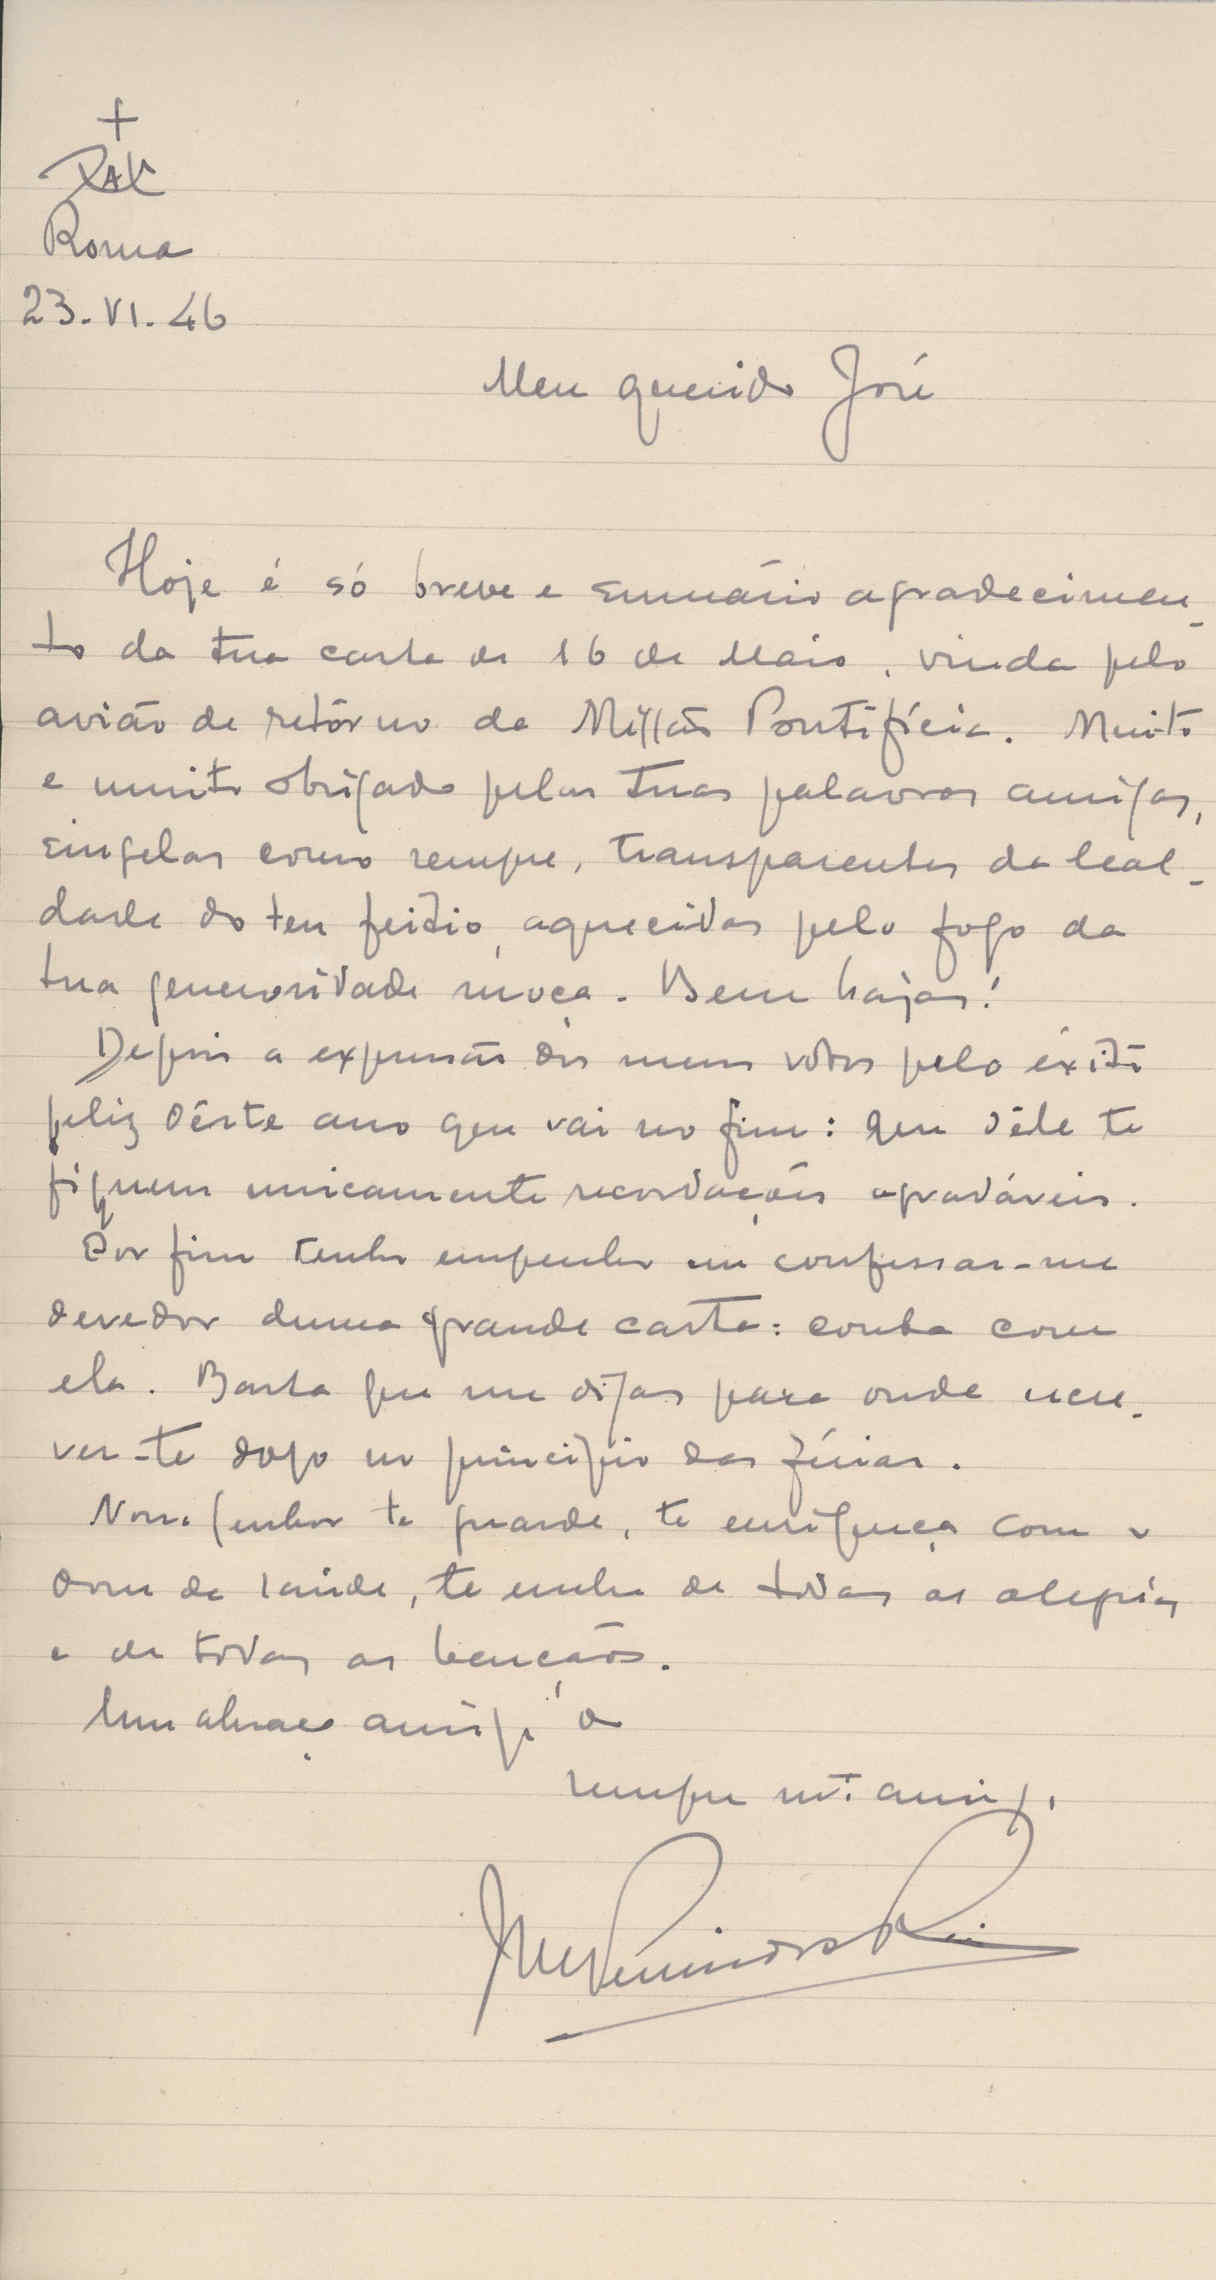 +
PAX
Roma
23. VI. 46
Meu querido José
Hoje é só breve e sumário agradecimen-
to da tua carta de 16 de Maio, vinda pelo
avião de retôrno da Missão Pontifícia. Muito
e muito obrigado pelas tuas palavras amigas,
singelas como sempre, transparentes da leal-
dade do teu feitio, aquecidas pelo fogo da
tua generosidade moça. Bem hajas!
Depois a expressão dos meus votos pelo êxito
feliz dêste ano que vai no fim: que dêle te
fiquem unicamente recordações agradáveis.
Por fim tenho empenho em confessar-me
devedor duma grande carta: conta com
ela. Basta que me digas para onde escre-
ver-te logo no princípio das férias.
Nosso Senhor te guarde, te enriqueça com o
dom da saúde, te encha de todas as alegrias
e de todas as bençãos.
Um abraço amigo do
sempre mt.º amigo